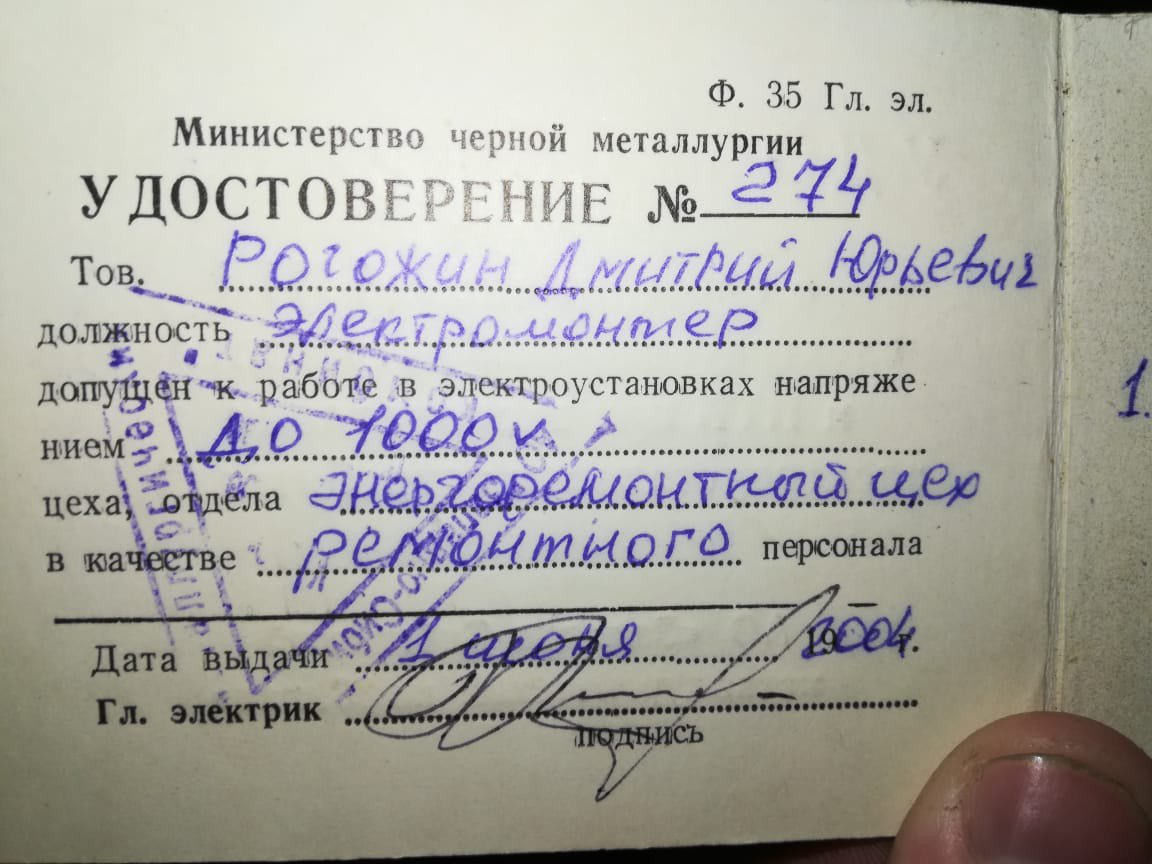 Ф. 35 Гл. эл.
Министерство черной металлургии
УДОСТОВЕРЕНИЕ № 274
Тов. Рогожин Дмитрий Юрьевич
должность электромонтер
допущен к работе в электроустановках напряже
нием до 1000 v
цеха, отдела энергоремонтный цех
в качестве ремонтного персонала
Дата выдачи 1 июня 2004 г.
Гл. электрик
подпись
1.